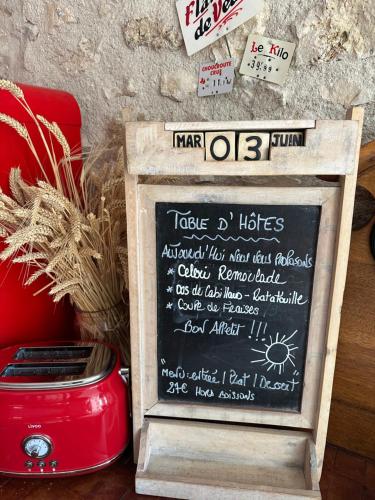 Flanc
de Veau
Le Kilo
39,99
CHOUCROUTE
CRUE
MAR 03 JUIN
TABLE D'HÔTES
AUJOURD'HUI NOUS VOUS PROPOSONS
* Celeri Remoulade
* Dos de Cabillaud - Ratatouille
* Coupe de Fraises
BON APPETIT !!!
"MENU: entrée / Plat / Dessert"
24€ HORS BOISSONS
LIVOO